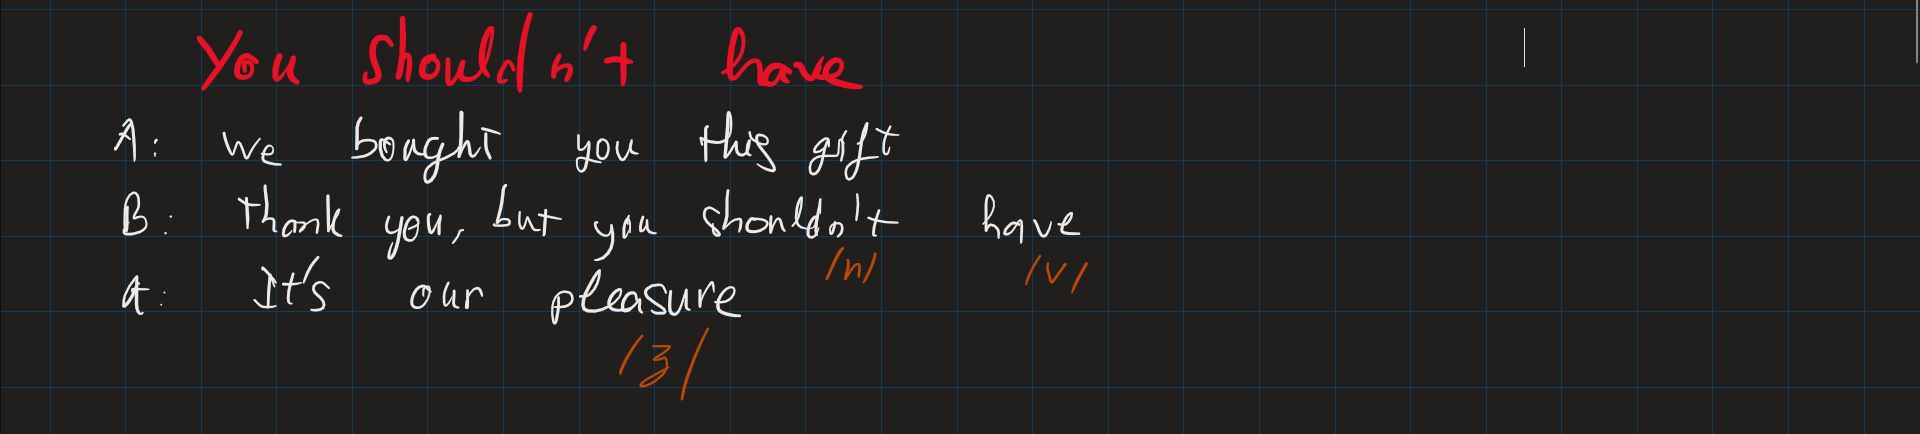 You shouldn't have
A: we bought you this gift
B: Thank you, but you shouldn't have
/n/ /v/
A: It's our pleasure
/ʒ/